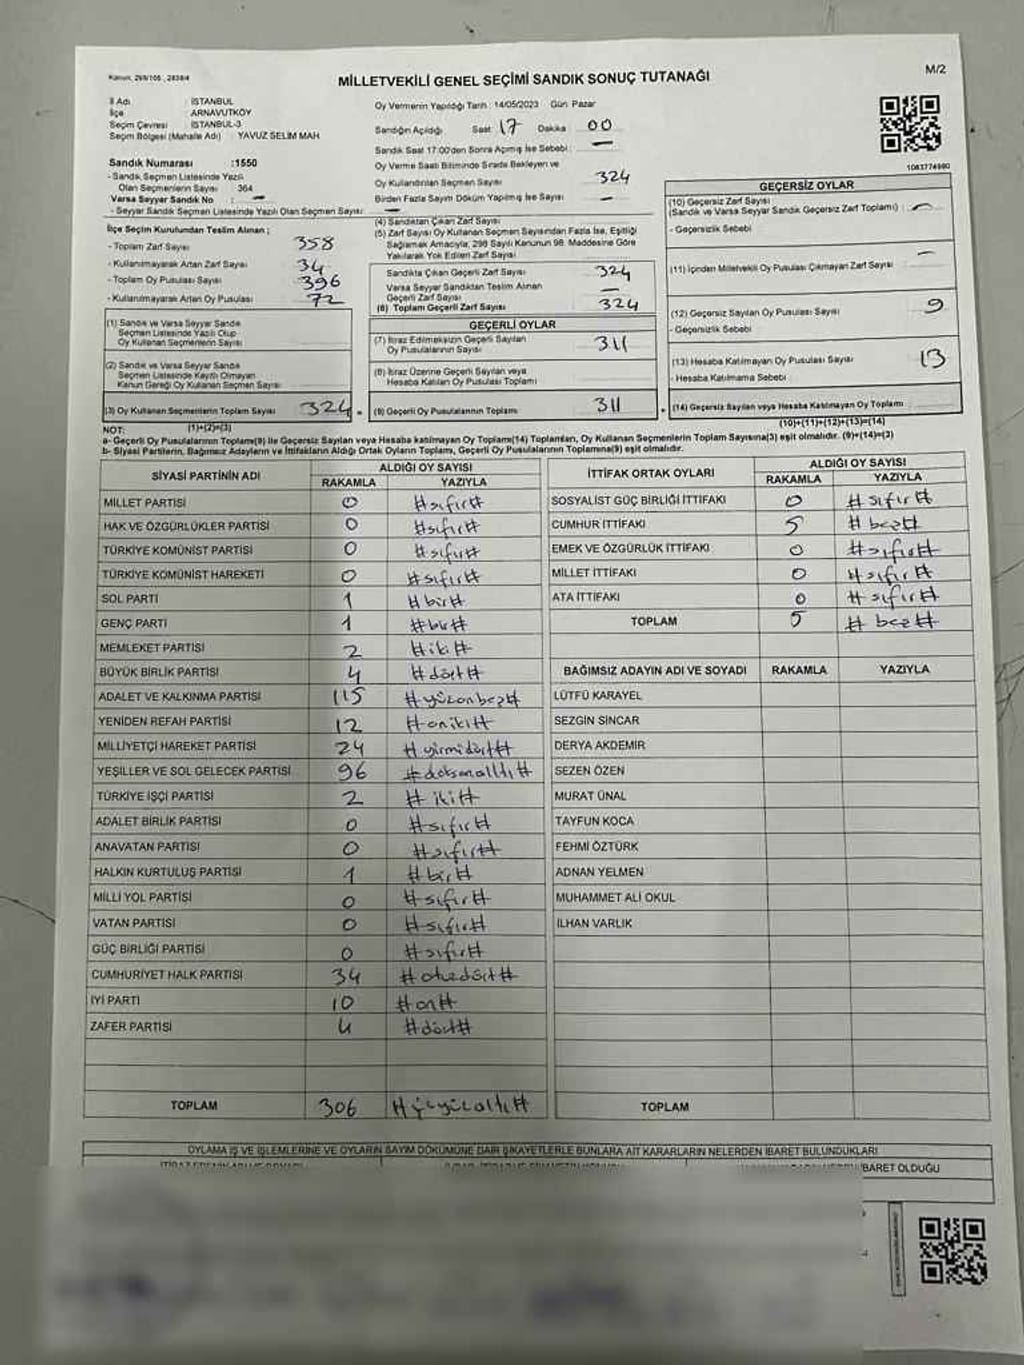 Kanun, 298/105 , 2839/4
MİLLETVEKİLİ GENEL SEÇİMİ SANDIK SONUÇ TUTANAĞI
M/2
İl Adı : İSTANBUL
İlçe : ARNAVUTKÖY
Seçim Çevresi : İSTANBUL-3
Seçim Bölgesi (Mahalle Adı) : YAVUZ SELİM MAH.
Sandık Numarası :1550
- Sandık Seçmen Listesinde Yazılı
Olan Seçmenlerin Sayısı 364
Varsa Seyyar Sandık No : —
- Seyyar Sandık Seçmen Listesinde Yazılı Olan Seçmen Sayısı :
Oy Vermenin Yapıldığı Tarih : 14/05/2023 Gün : Pazar
Sandığın Açıldığı Saat 17 Dakika 00
Sandık Saat 17:00'den Sonra Açılmış İse Sebebi : —
Oy Verme Saati Bitiminde Sırada Bekleyen ve
Oy Kullandırılan Seçmen Sayısı 324
Birden Fazla Sayım Döküm Yapılmış İse Sayısı —
1063774980
İlçe Seçim Kurulundan Teslim Alınan ;
- Toplam Zarf Sayısı 358
- Kullanılmayarak Artan Zarf Sayısı 34
- Toplam Oy Pusulası Sayısı 396
- Kullanılmayarak Artan Oy Pusulası 72
(1) Sandık ve Varsa Seyyar Sandık
Seçmen Listesinde Yazılı Olup
Oy Kullanan Seçmenlerin Sayısı
(2) Sandık ve Varsa Seyyar Sandık
Seçmen Listesinde Kayıtlı Olmayan
Kanun Gereği Oy Kullanan Seçmen Sayısı
(3) Oy Kullanan Seçmenlerin Toplam Sayısı 324
(1)+(2)=(3)
(4) Sandıktan Çıkan Zarf Sayısı
(5) Zarf Sayısı Oy Kullanan Seçmen Sayısından Fazla İse, Eşitliği
Sağlamak Amacıyla, 298 Sayılı Kanunun 98. Maddesine Göre
Yakılarak Yok Edilen Zarf Sayısı
Sandıkta Çıkan Geçerli Zarf Sayısı 324
Varsa Seyyar Sandıktan Teslim Alınan
Geçerli Zarf Sayısı —
(6) Toplam Geçerli Zarf Sayısı 324
GEÇERLİ OYLAR
(7) İtiraz Edilmeksizin Geçerli Sayılan
Oy Pusulalarının Sayısı 311
(8) İtiraz Üzerine Geçerli Sayılan veya
Hesaba Katılan Oy Pusulası Toplamı
(9) Geçerli Oy Pusulalarının Toplamı 311
GEÇERSİZ OYLAR
(10) Geçersiz Zarf Sayısı
(Sandık ve Varsa Seyyar Sandık Geçersiz Zarf Toplamı) :
- Geçersizlik Sebebi
(11) İçinden Milletvekili Oy Pusulası Çıkmayan Zarf Sayısı —
(12) Geçersiz Sayılan Oy Pusulası Sayısı 9
- Geçersizlik Sebebi
(13) Hesaba Katılmayan Oy Pusulası Sayısı 13
- Hesaba Katılmama Sebebi
(14) Geçersiz Sayılan veya Hesaba Katılmayan Oy Toplamı
(10)+(11)+(12)+(13)=(14)
NOT:
a- Geçerli Oy Pusulalarının Toplamı(9) ile Geçersiz Sayılan veya Hesaba katılmayan Oy Toplamı(14) Toplamları, Oy Kullanan Seçmenlerin Toplam Sayısına(3) eşit olmalıdır. (9)+(14)=(3)
b- Siyasi Partilerin, Bağımsız Adayların ve İttifakların Aldığı Ortak Oyların Toplamı, Geçerli Oy Pusulalarının Toplamına(9) eşit olmalıdır.
SİYASİ PARTİNİN ADI ALDIĞI OY SAYISI
RAKAMLA YAZIYLA
MİLLET PARTİSİ 0 #sıfır#
HAK VE ÖZGÜRLÜKLER PARTİSİ 0 #sıfır#
TÜRKİYE KOMÜNİST PARTİSİ 0 #sıfır#
TÜRKİYE KOMÜNİST HAREKETİ 0 #sıfır#
SOL PARTİ 1 #bir#
GENÇ PARTİ 1 #bir#
MEMLEKET PARTİSİ 2 #iki#
BÜYÜK BİRLİK PARTİSİ 4 #dört#
ADALET VE KALKINMA PARTİSİ 115 #yüzonbeş#
YENİDEN REFAH PARTİSİ 12 #oniki#
MİLLİYETÇİ HAREKET PARTİSİ 24 #yirmidört#
YEŞİLLER VE SOL GELECEK PARTİSİ 96 #doksanaltı#
TÜRKİYE İŞÇİ PARTİSİ 2 #iki#
ADALET BİRLİK PARTİSİ 0 #sıfır#
ANAVATAN PARTİSİ 0 #sıfır#
HALKIN KURTULUŞ PARTİSİ 1 #bir#
MİLLİ YOL PARTİSİ 0 #sıfır#
VATAN PARTİSİ 0 #sıfır#
GÜÇ BİRLİĞİ PARTİSİ 0 #sıfır#
CUMHURİYET HALK PARTİSİ 34 #otuzdört#
İYİ PARTİ 10 #on#
ZAFER PARTİSİ 4 #dört#
TOPLAM 306 #üçyüzaltı#
İTTİFAK ORTAK OYLARI ALDIĞI OY SAYISI
RAKAMLA YAZIYLA
SOSYALİST GÜÇ BİRLİĞİ İTTİFAKI 0 #sıfır#
CUMHUR İTTİFAKI 5 #beş#
EMEK VE ÖZGÜRLÜK İTTİFAKI 0 #sıfır#
MİLLET İTTİFAKI 0 #sıfır#
ATA İTTİFAKI 0 #sıfır#
TOPLAM 5 #beş#
BAĞIMSIZ ADAYIN ADI VE SOYADI RAKAMLA YAZIYLA
LÜTFÜ KARAYEL
SEZGİN SİNCAR
DERYA AKDEMİR
SEZEN ÖZEN
MURAT ÜNAL
TAYFUN KOCA
FEHMİ ÖZTÜRK
ADNAN YELMEN
MUHAMMET ALİ OKUL
İLHAN VARLIK
TOPLAM
OYLAMA İŞ VE İŞLEMLERİNE VE OYLARIN SAYIM DÖKÜMÜNE DAİR ŞİKAYETLERLE BUNLARA AİT KARARLARIN NELERDEN İBARET BULUNDUKLARI
İBARET OLDUĞU